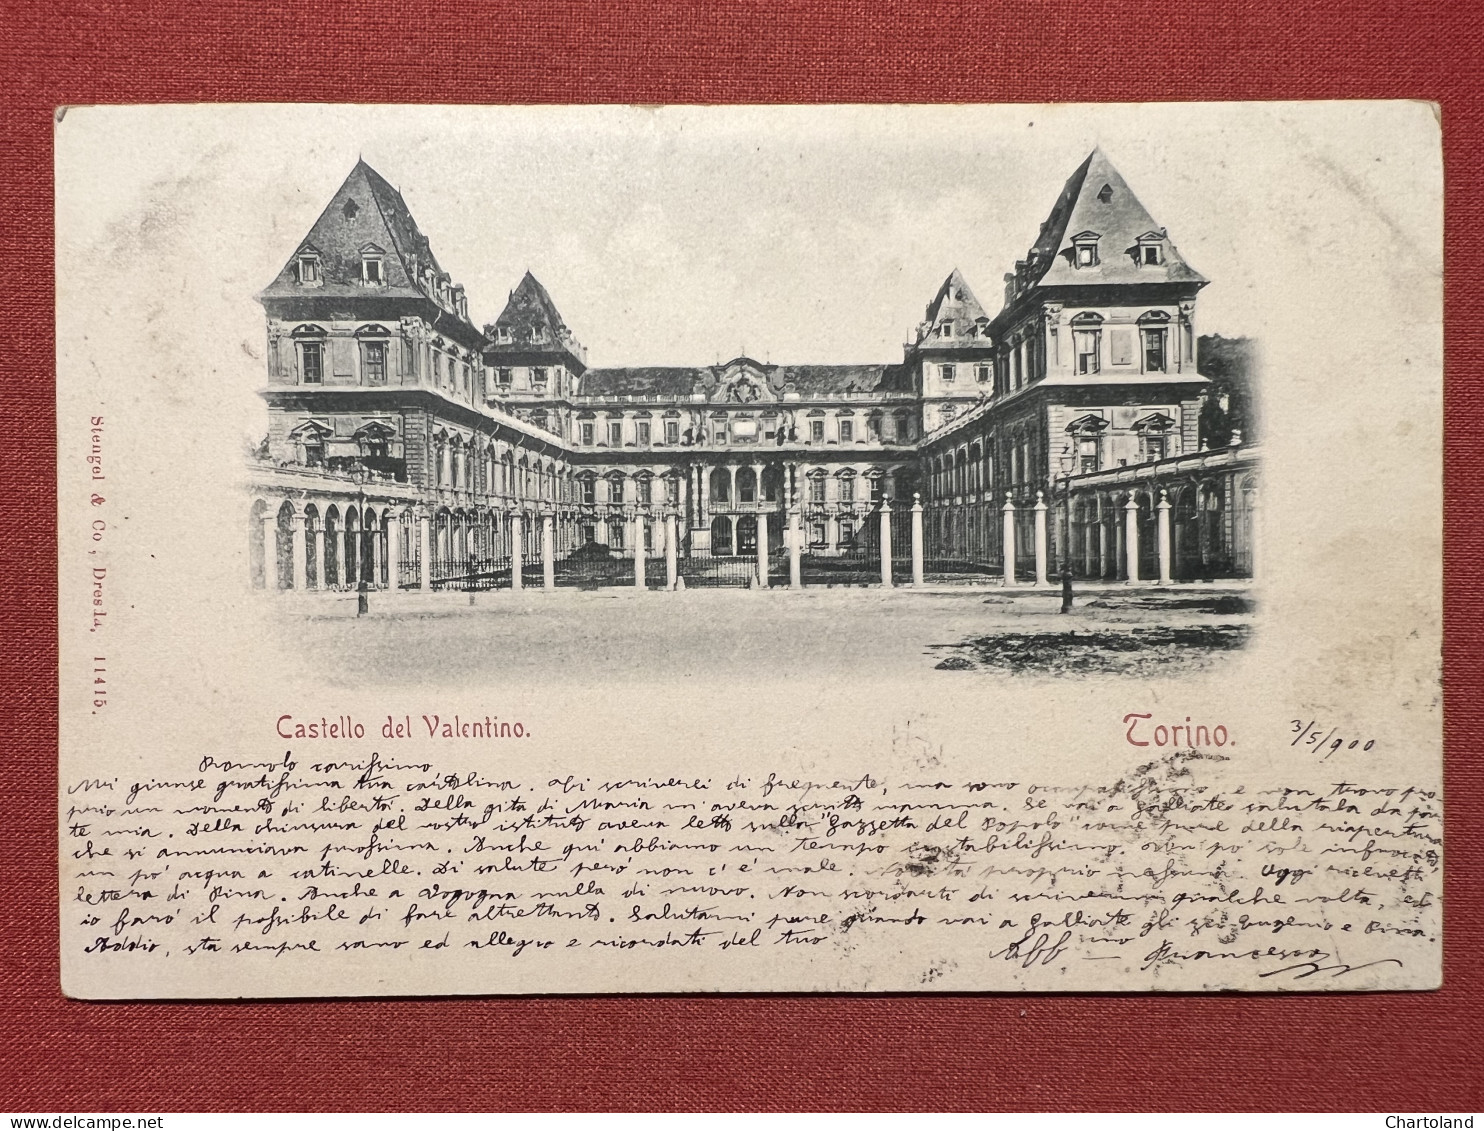 Stengel & Co., Dresda, 11415.
Castello del Valentino.
Torino.
3/5/900
Romolo carissimo
Mi giunse gratissima tua cartolina. Ti scriverei di frequente, ma sono occupatissimo, e non trovo pro
prio un momento di libertà. Della gita di Maria m'aveva scritto mamma. Se vai a Galliate salutala da par
te mia. Della chiusura del vostro istituto aveva letto sulla "Gazzetta del Popolo" come pure della riapertura
che si annunciava prossima. Anche qui abbiamo un tempo instabilissimo. Un po' sole
un po' acqua a catinelle. Di salute però non c'è male. Novità proprio nessuna. Oggi ricevetti
lettera di Pina. Anche a nulla di nuovo. Non scordarti di scrivermi qualche volta, ed
io farò il possibile di fare altrettanto. Salutami pure quando vai a Galliate gli zii Eugenio e Pina.
Addio, sta sempre sano ed allegro e ricordati del tuo
Aff mo Francesco
Delcampe.net
Chartoland